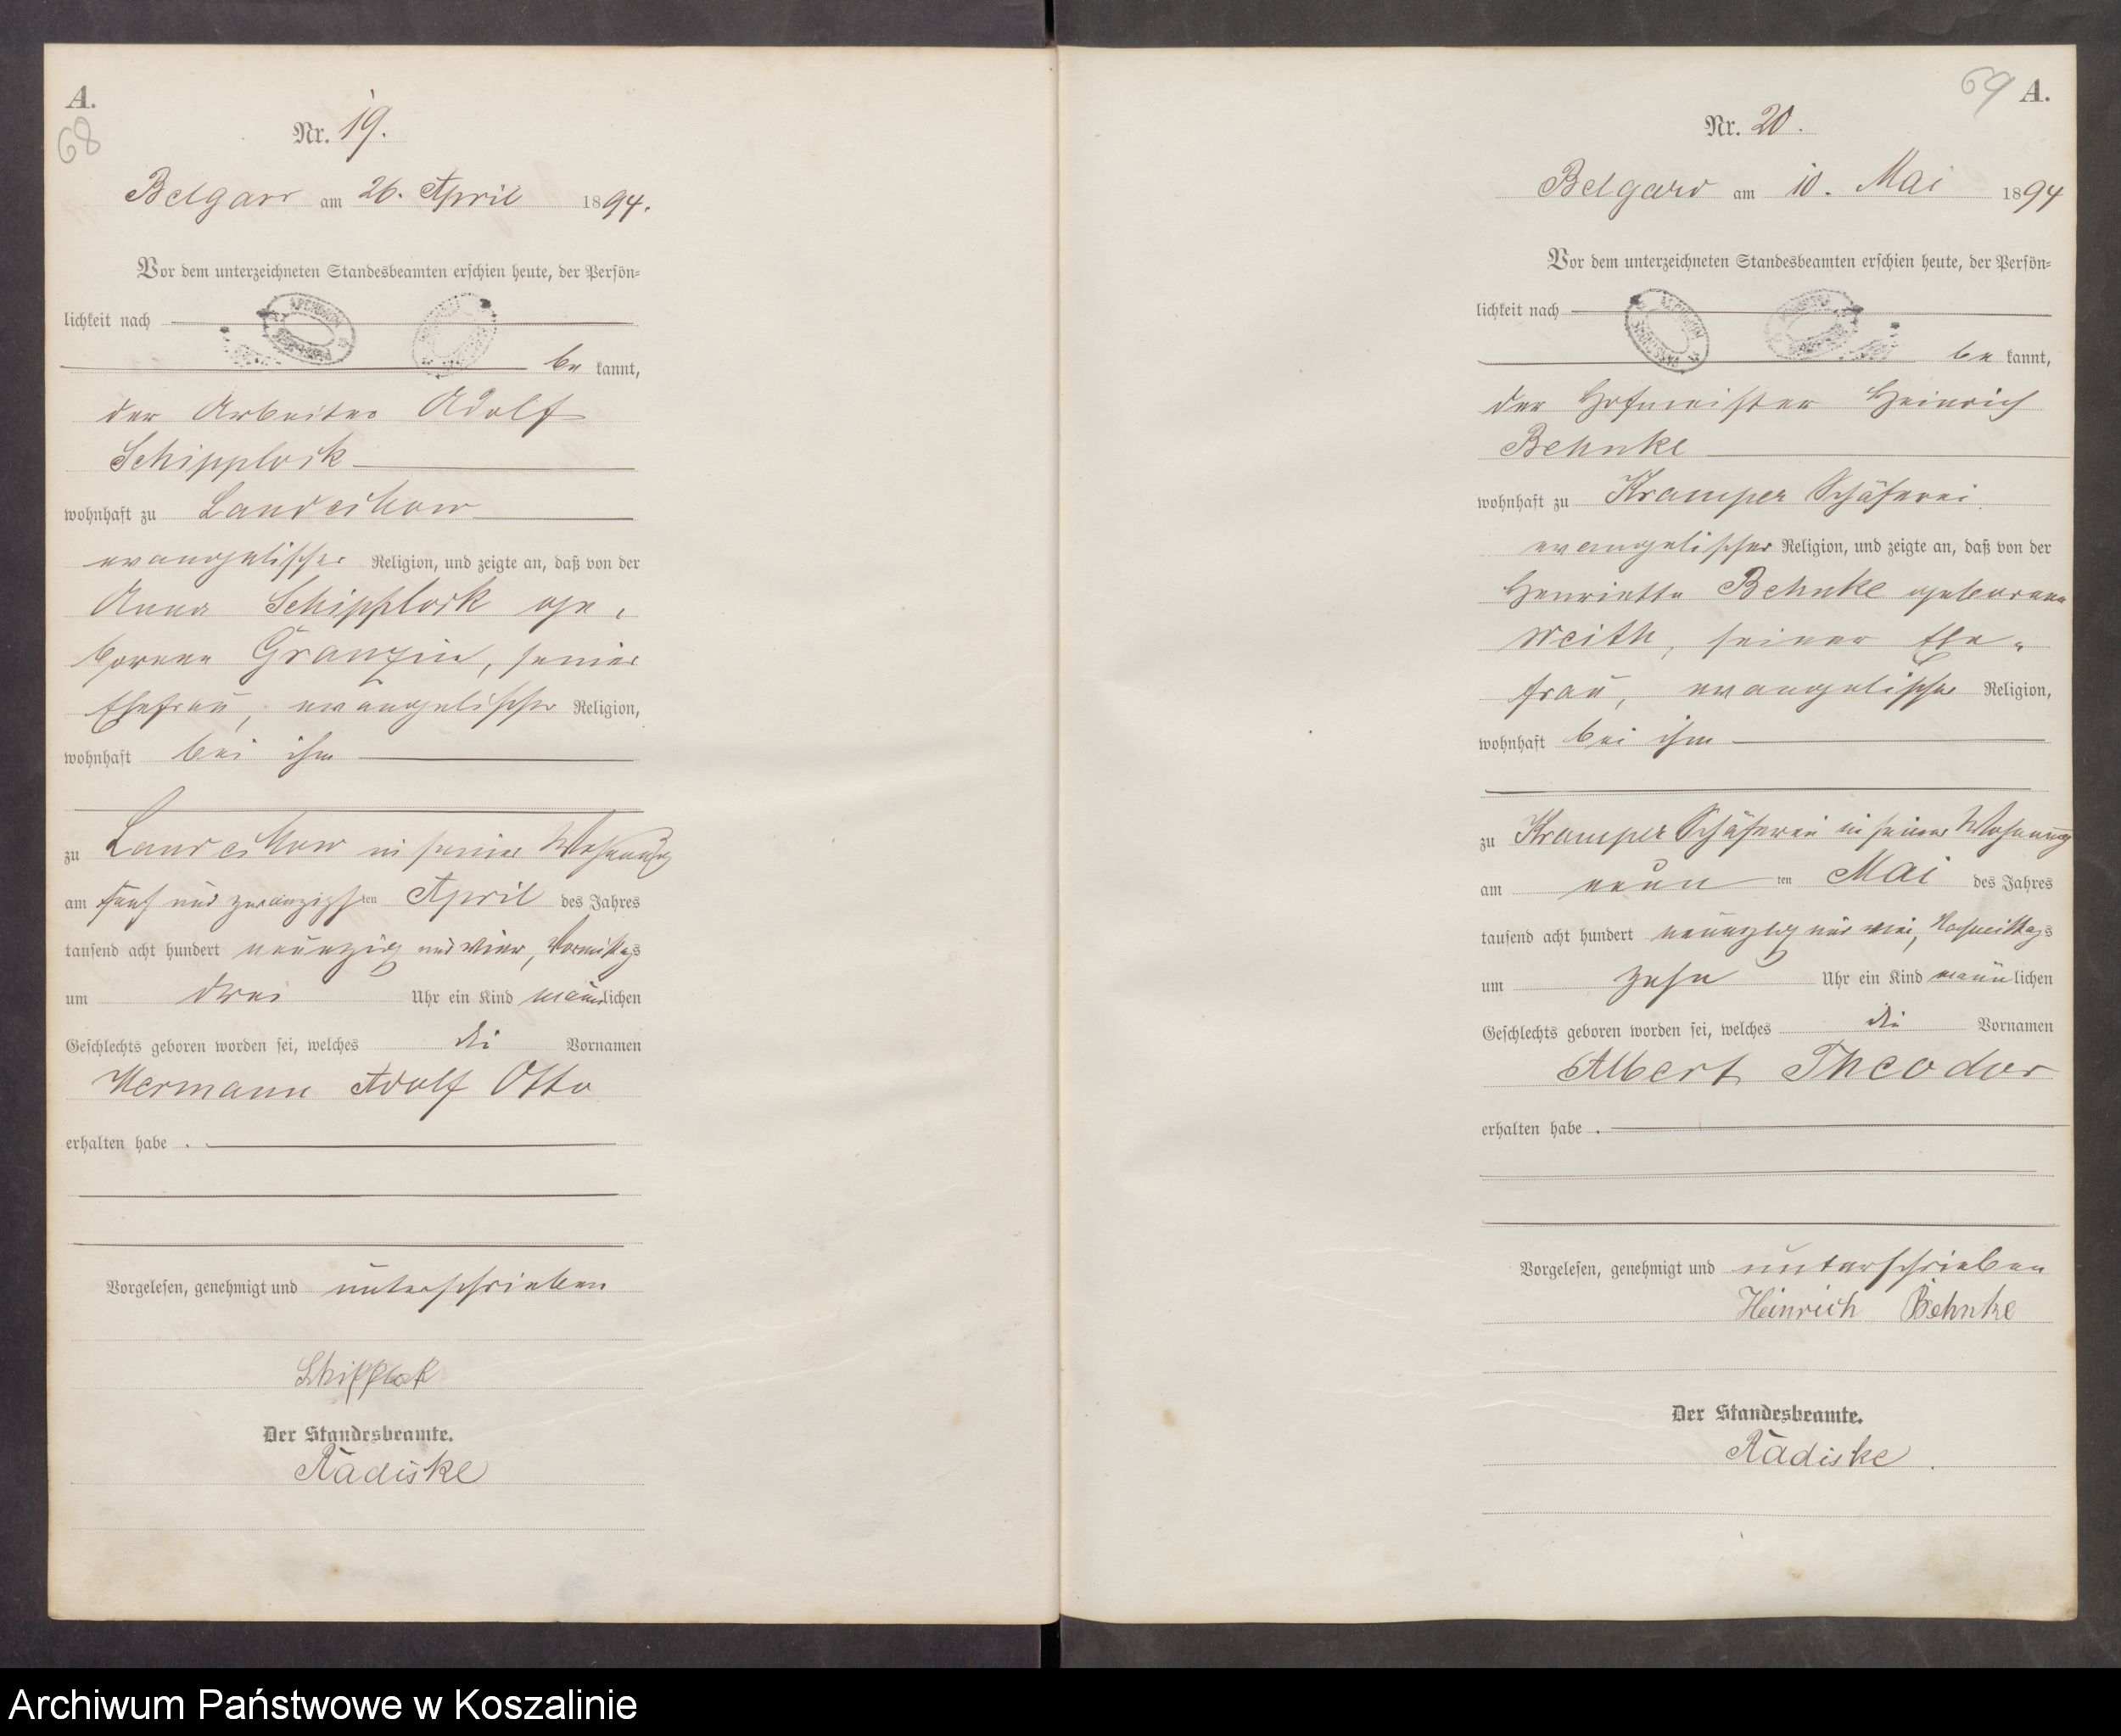 A.
68
Nr. 19.
Belgard am 26. April 1894.
Vor dem unterzeichneten Standesbeamten erschien heute, der Persön=
lichkeit nach
be kannt,
der Arbeiter Adolf
Schipplock
wohnhaft zu Landechow
evangelischer Religion, und zeigte an, daß von der
Anna Schipplock ge-
borene Granzin, seiner
Ehefrau, evangelischer Religion,
wohnhaft bei ihm
zu Landechow in seiner Wohnung
am fünf und zwanzigsten April des Jahres
tausend acht hundert neunzig und vier, Vormittags
um drei Uhr ein Kind männlichen
Geschlechts geboren worden sei, welches die Vornamen
Hermann Adolf Otto
erhalten habe.
Vorgelesen, genehmigt und unterschrieben
Schipplock
Der Standesbeamte.
Radiske
69 A.
Nr. 20.
Belgard am 10. Mai 1894
Vor dem unterzeichneten Standesbeamten erschien heute, der Persön=
lichkeit nach
be kannt,
der Hofmeister Heinrich
Behnke
wohnhaft zu Kramper Schäferei
evangelischer Religion, und zeigte an, daß von der
Henriette Behnke geborene
Weith, seiner Ehe-
frau, evangelischer Religion,
wohnhaft bei ihm
zu Kramper Schäferei in seiner Wohnung
am neun ten Mai des Jahres
tausend acht hundert neunzig und vier, Nachmittags
um zehn Uhr ein Kind männlichen
Geschlechts geboren worden sei, welches die Vornamen
Albert Theodor
erhalten habe.
Vorgelesen, genehmigt und unterschrieben
Heinrich Behnke
Der Standesbeamte.
Radiske.
Archiwum Państwowe w Koszalinie